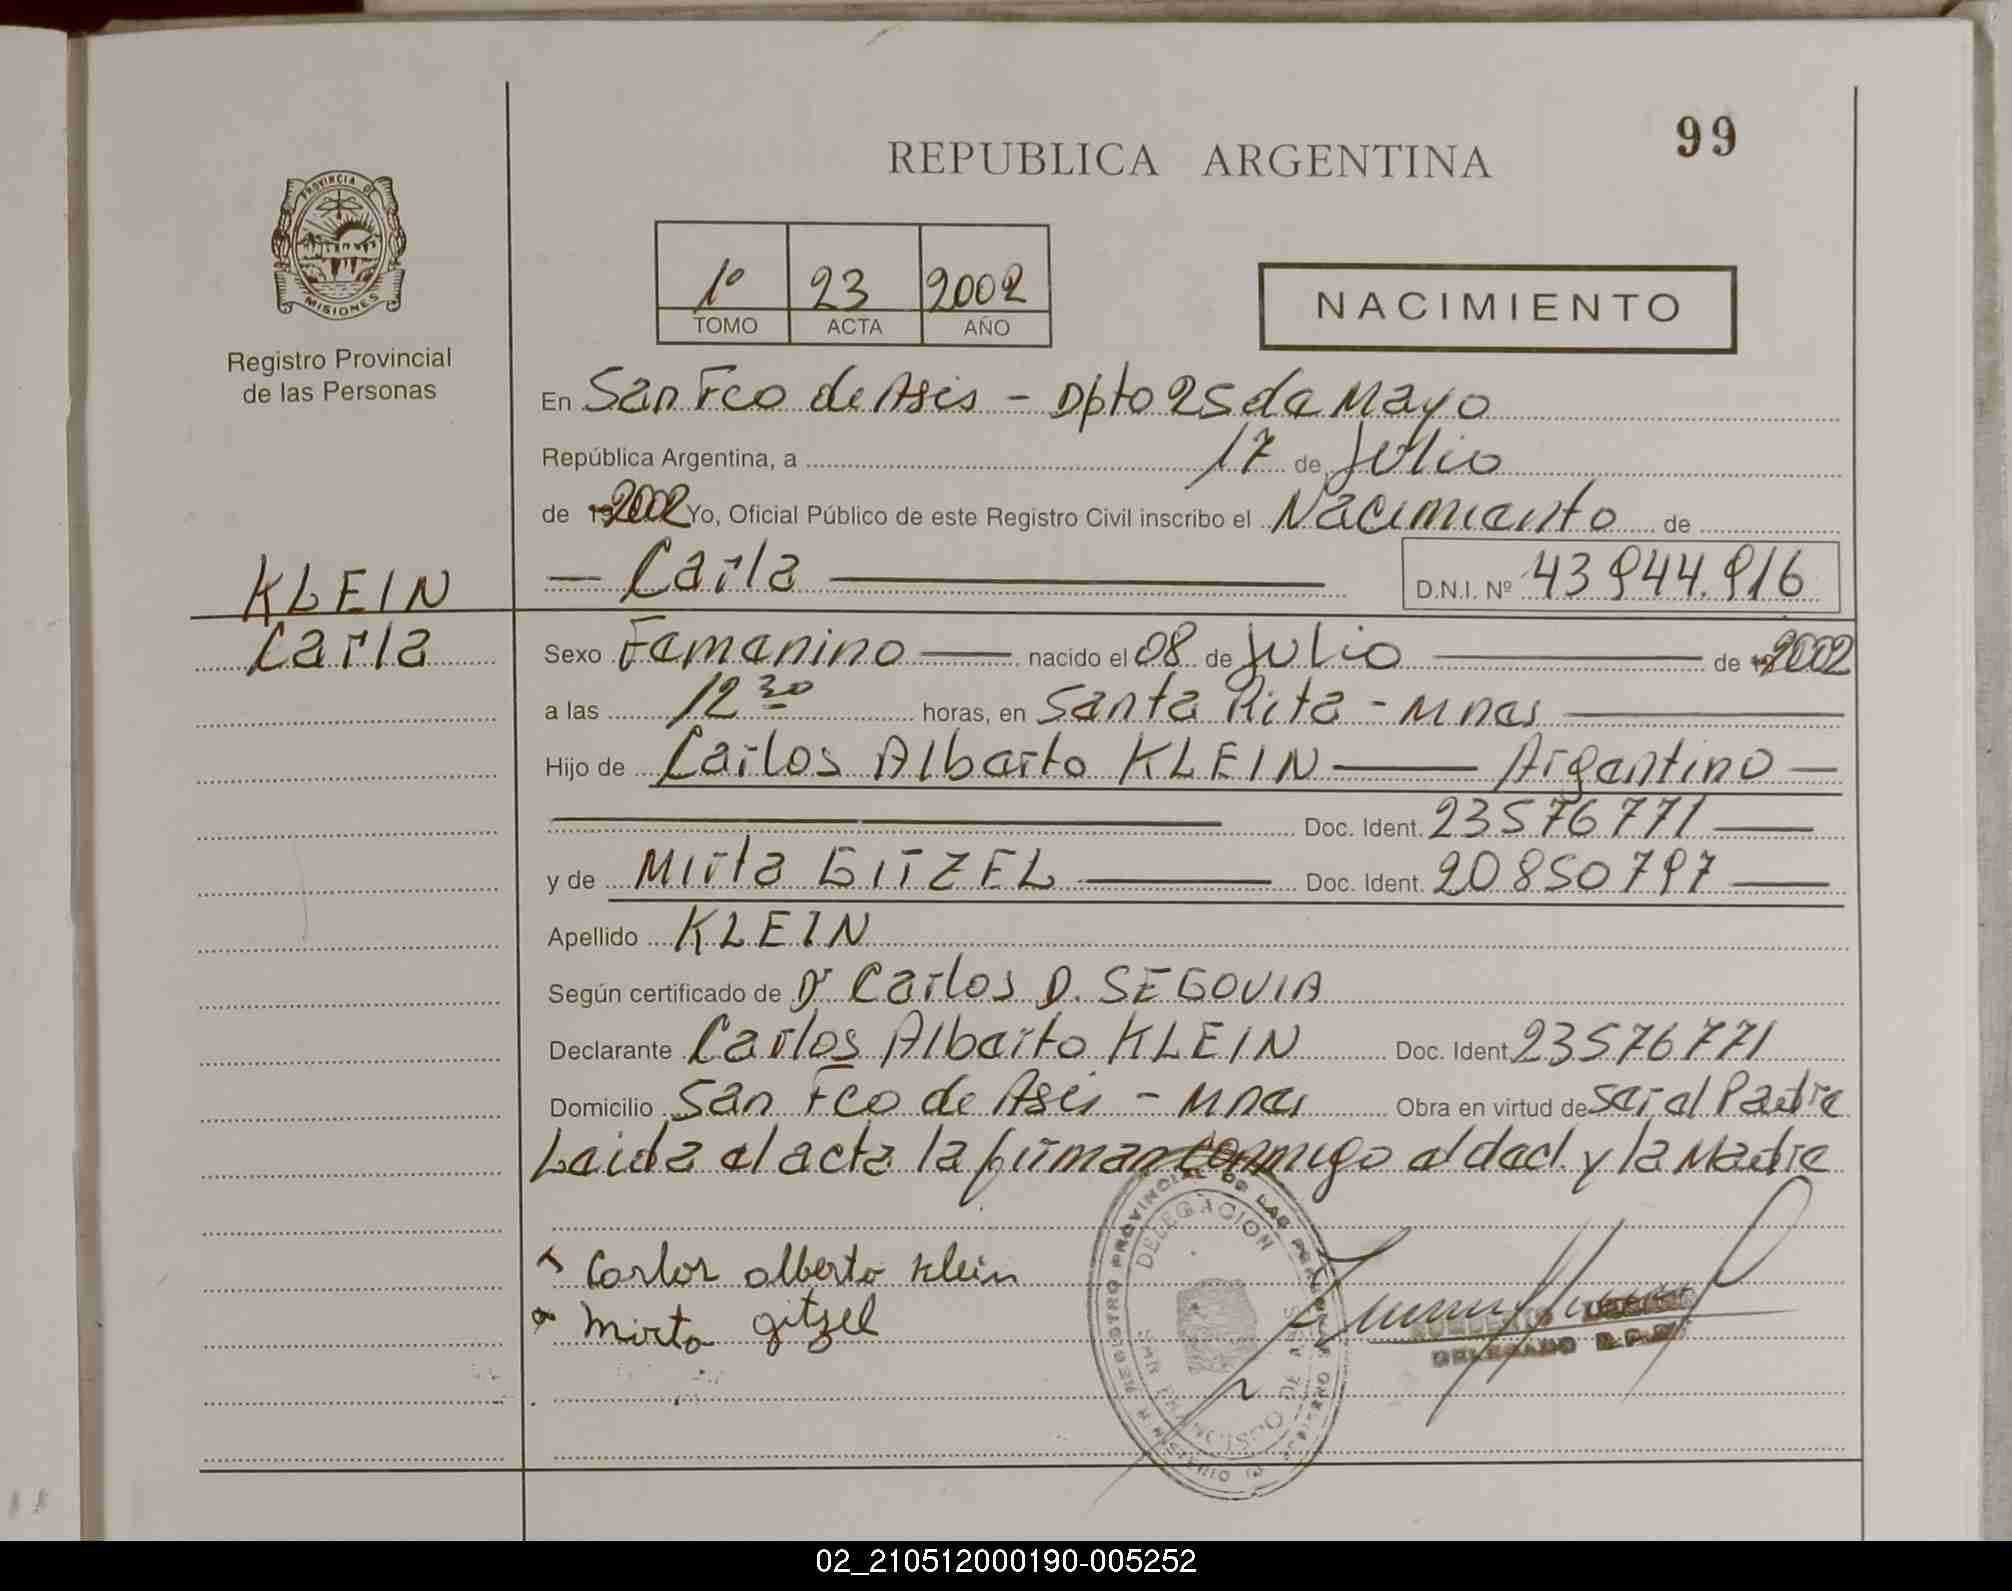 99
REPUBLICA ARGENTINA
PROVINCIA DE
MISIONES
Registro Provincial
de las Personas
1º 23 2002
TOMO ACTA AÑO
NACIMIENTO
En San Fco de Asis - Dpto 25 de Mayo
República Argentina, a 17 de Julio
de 2002 Yo, Oficial Público de este Registro Civil inscribo el Nacimiento de
Carla D.N.I. Nº 43944.916
KLEIN
Carla
Sexo Femenino nacido el 08 de Julio de 2002
a las 12 30 horas, en Santa Rita - Mnes
Hijo de Carlos Alberto KLEIN Argentino
Doc. Ident. 23576771
y de Mirta GITZEL Doc. Ident. 20850797
Apellido KLEIN
Según certificado de Dr Carlos D. SEGOVIA
Declarante Carlos Alberto KLEIN Doc. Ident. 23576771
Domicilio San Fco de Asis - Mnes Obra en virtud de ser el Padre
Leida el acta la firman conmigo el decl. y la Madre
Carlos alberto Klein
Mirta gitzel
REGISTRO PROVINCIAL DE LAS PERSONAS
DELEGACION
SAN FRANCISCO DE ASIS
MINISTERIO DE GOBIERNO
DELEGADO R.P.P.
02_210512000190-005252